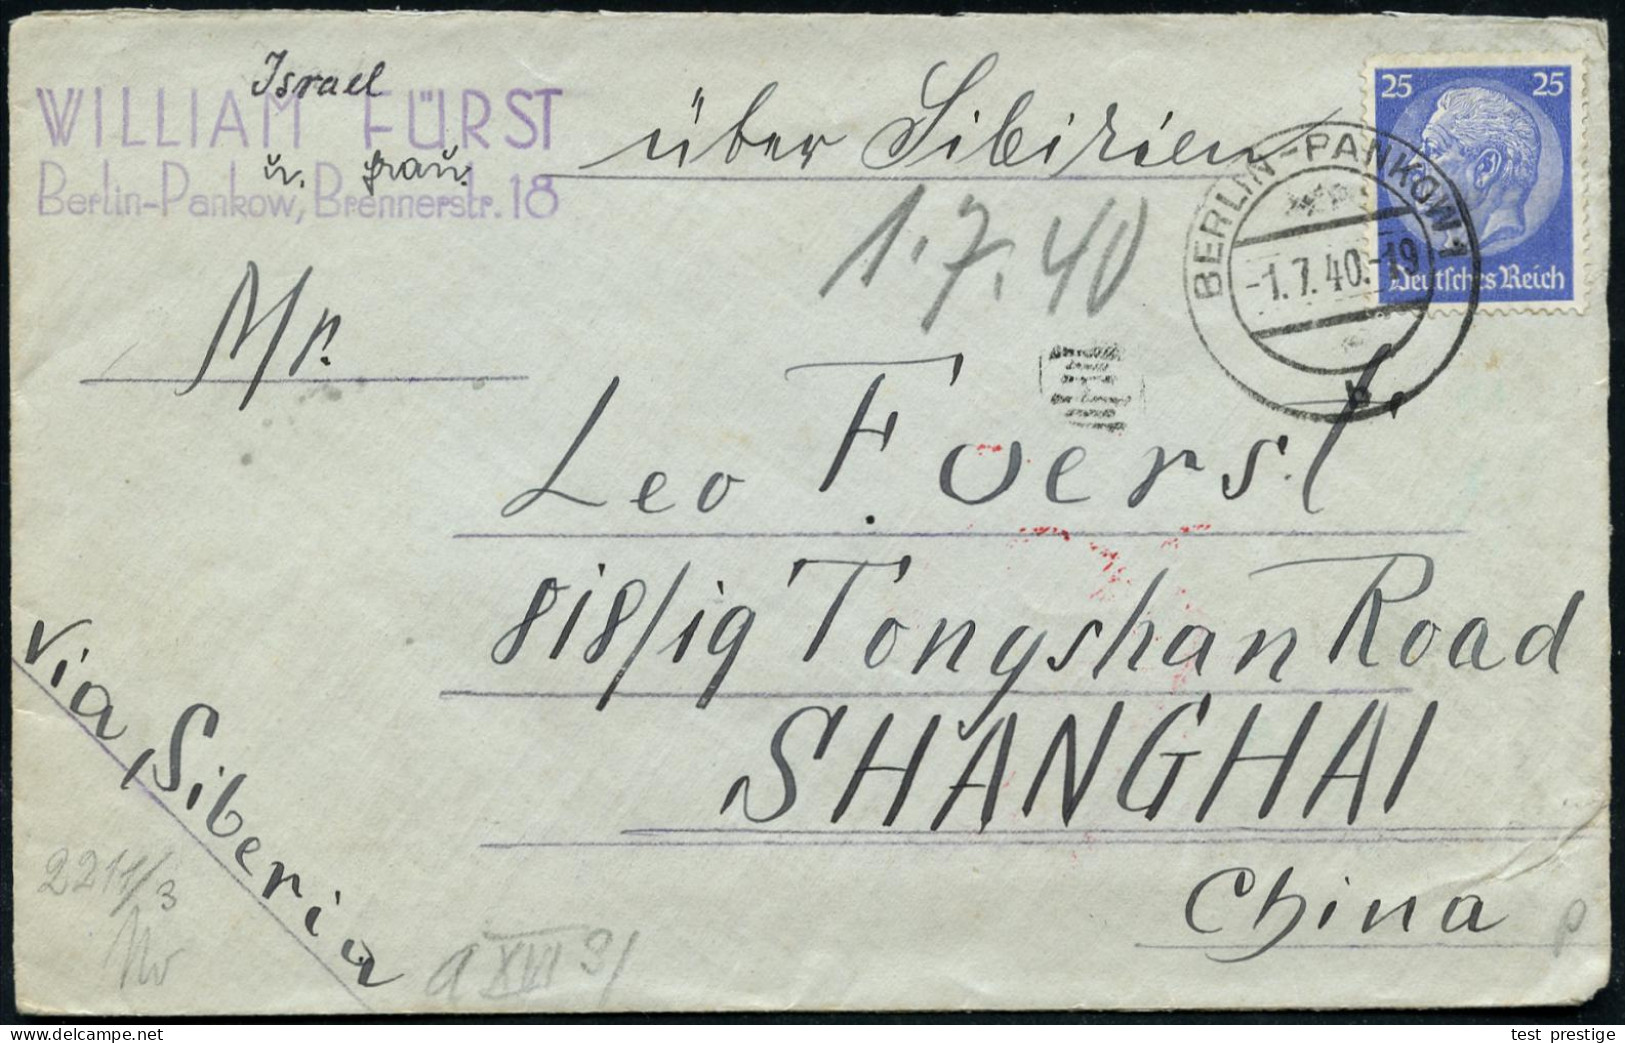 Israel
WILLIAM FÜRST
u. Frau.
Berlin-Pankow, Brennerstr. 18
über Sibirien
25 25
Deutsches Reich
BERLIN-PANKOW 1
-1.7.40.-19
b
1.7.40
Mr.
Leo F. Foerst
818/19 Tongshan Road
SHANGHAI
China
Via Siberia
2211/3
a XVII 9/
p
test prestige